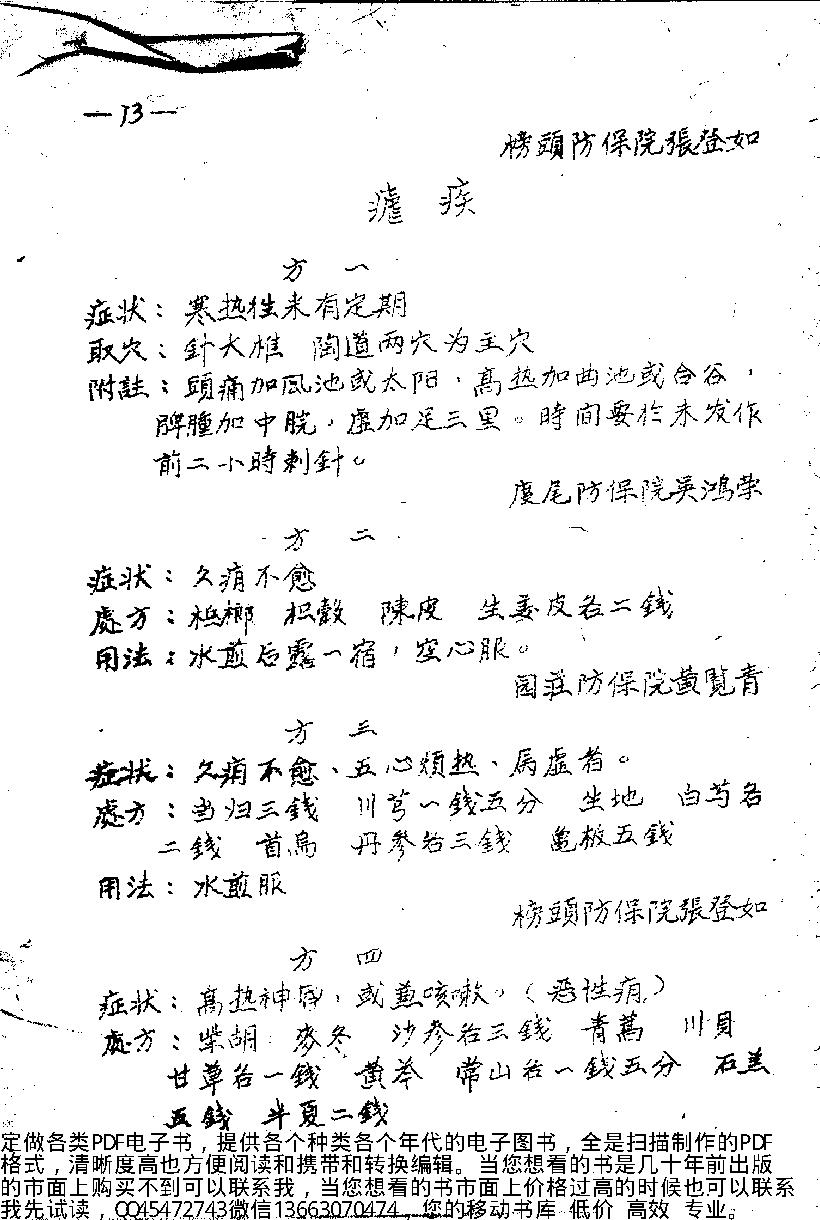 —13—
榜頭防保院張登如
瘧 疾
方 一
症状：寒热往来有定期
取穴：針大椎 陶道两穴为主穴
附註：頭痛加风池或太阳，高热加曲池或合谷，
脾腫加中脘，虚加足三里。時间要於未发作
前二小時刺針。
度尾防保院吴鴻荣
方 二
症状：久痟不愈
處方：梹榔 枳殼 陳皮 生姜皮各二錢
用法：水煎后露一宿，空心服。
园莊防保院黄覧青
方 三
症状：久痟不愈、五心煩热、属虚者。
處方：当归三錢 川芎一錢五分 生地 白芍各
二錢 首烏 丹參各三錢 龟板五錢
用法：水煎服
榜頭防保院張登如
方 四
症状：高热神昏，或兼咳嗽。（恶性痟）
處方：柴胡 麥冬 沙参各三錢 青蒿 川貝
甘草各一錢 黄芩 常山各一錢五分 石羔
五錢 半夏二錢
定做各类PDF电子书，提供各个种类各个年代的电子图书，全是扫描制作的PDF
格式，清晰度高也方便阅读和携带和转换编辑。当您想看的书是几十年前出版
的市面上购买不到可以联系我，当您想看的书市面上价格过高的时候也可以联系
我先试读，QQ45472743微信13663070474，您的移动书库 低价 高效 专业。